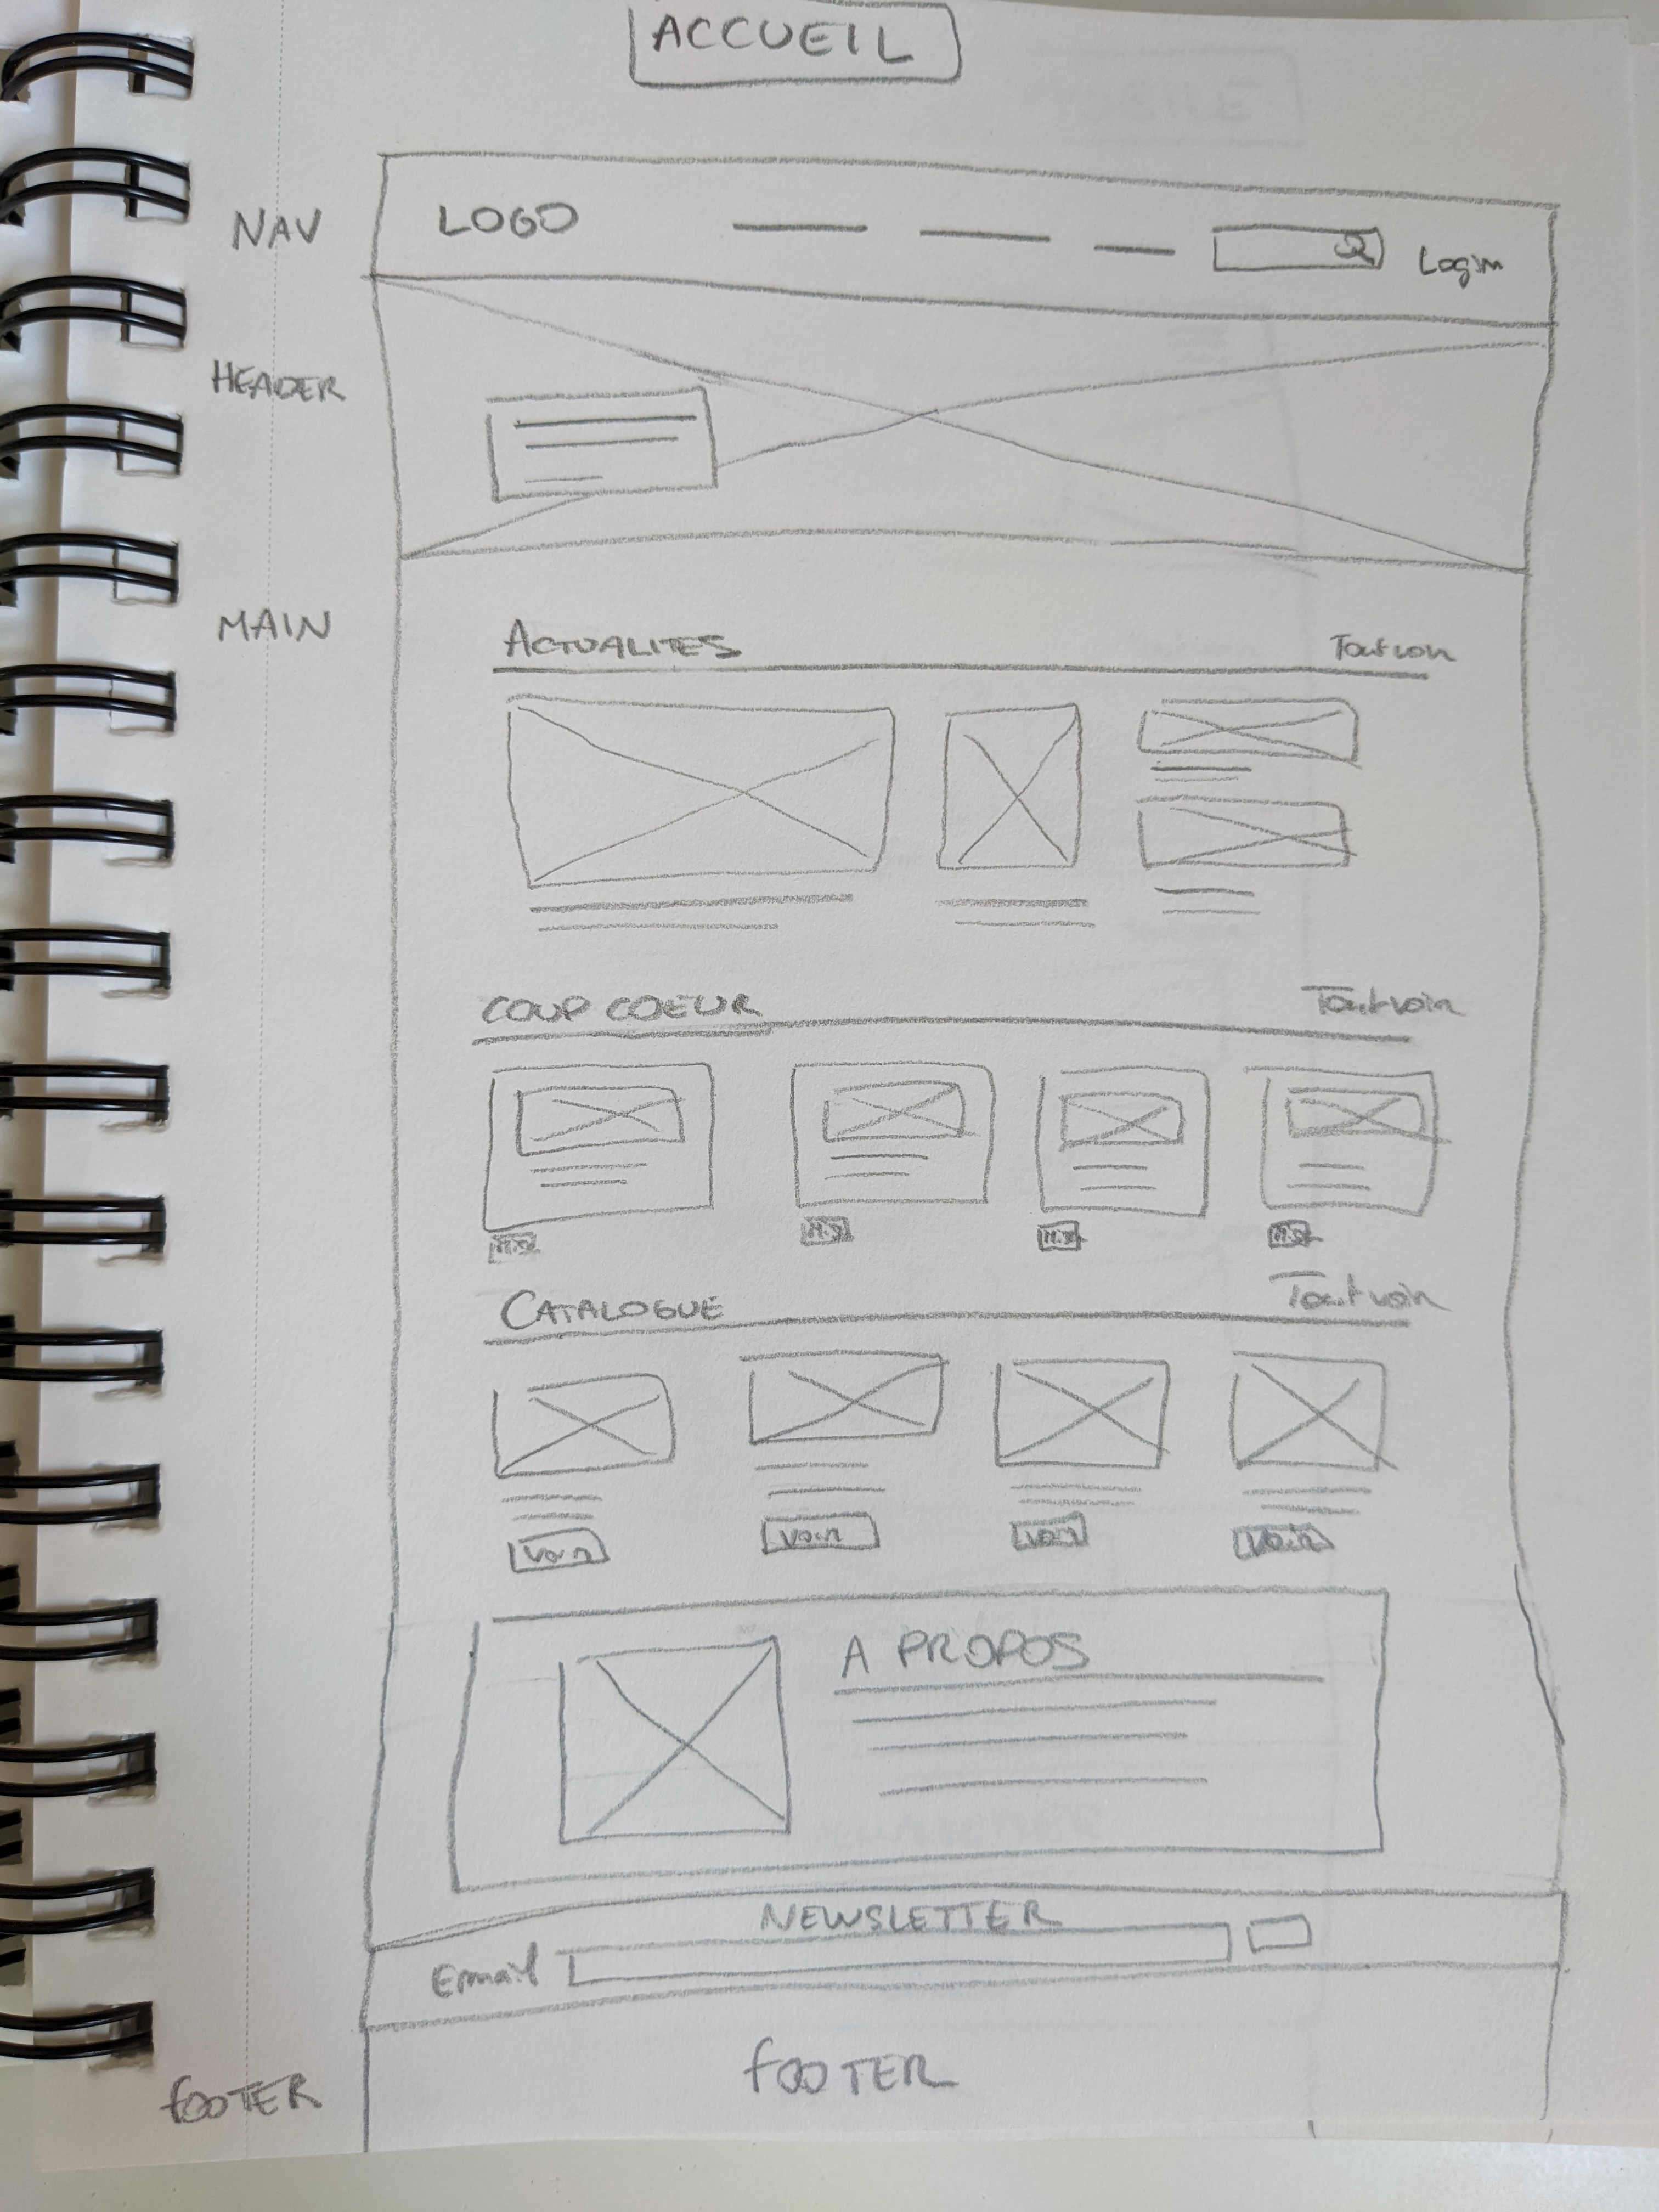 ACCUEIL
NAV
LOGO
Login
HEADER
MAIN
ACTUALITES
Tout voir
COUP COEUR
Tout voir
CATALOGUE
Tout voir
Voir
Voir
Voir
Voir
A PROPOS
NEWSLETTER
Email
FOOTER
FOOTER